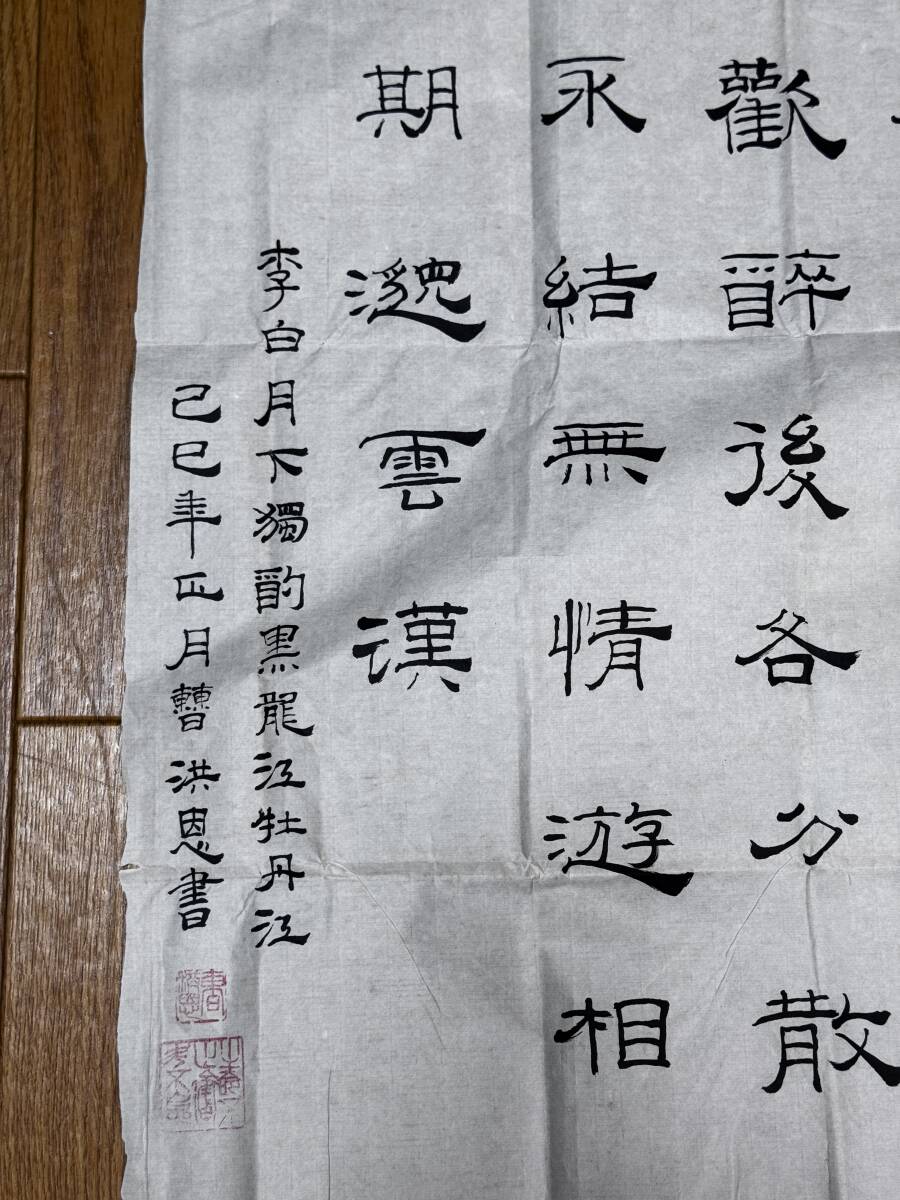 歡醉後各分散
永結無情遊相
期邈雲漢
李白月下獨酌黑龍江牡丹江
己巳年正月曹洪恩書